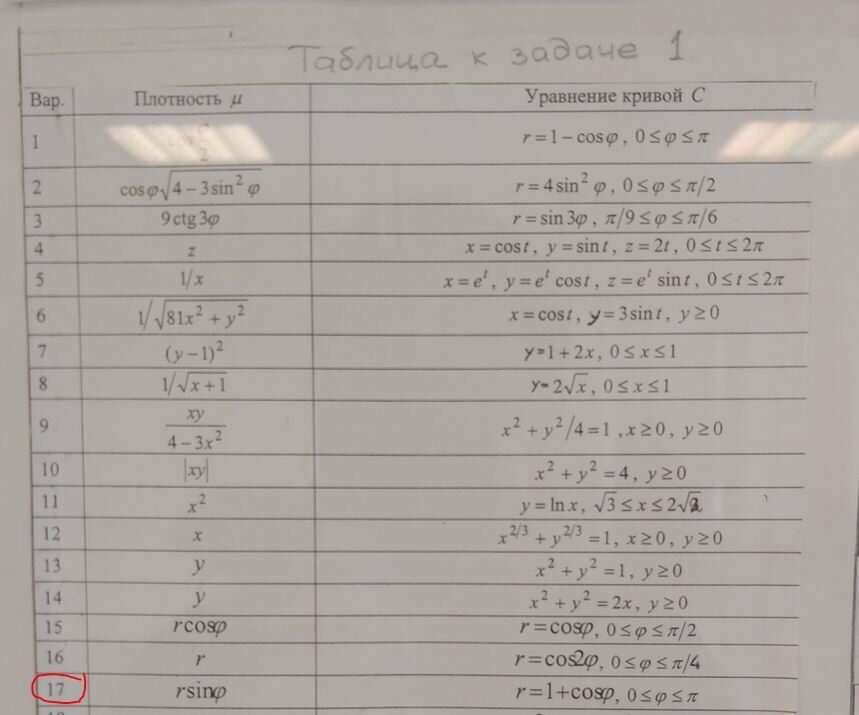 Таблица к задаче 1
Вар. Плотность μ Уравнение кривой C
1 cos φ/2 r = 1 − cosφ, 0 ≤ φ ≤ π
2 cosφ√(4 − 3sin² φ) r = 4sin² φ, 0 ≤ φ ≤ π/2
3 9ctg3φ r = sin3φ, π/9 ≤ φ ≤ π/6
4 z x = cost, y = sint, z = 2t, 0 ≤ t ≤ 2π
5 1/x x = eᵗ, y = eᵗ cost, z = eᵗ sint, 0 ≤ t ≤ 2π
6 1/√(81x² + y²) x = cost, y = 3sint, y ≥ 0
7 (y − 1)² y = 1 + 2x, 0 ≤ x ≤ 1
8 1/√(x + 1) y = 2√x, 0 ≤ x ≤ 1
9 xy/(4 − 3x²) x² + y²/4 = 1, x ≥ 0, y ≥ 0
10 |xy| x² + y² = 4, y ≥ 0
11 x² y = ln x, √3 ≤ x ≤ 2√2
12 x x^(2/3) + y^(2/3) = 1, x ≥ 0, y ≥ 0
13 y x² + y² = 1, y ≥ 0
14 y x² + y² = 2x, y ≥ 0
15 rcosφ r = cosφ, 0 ≤ φ ≤ π/2
16 r r = cos2φ, 0 ≤ φ ≤ π/4
17 rsinφ r = 1+cosφ, 0 ≤ φ ≤ π